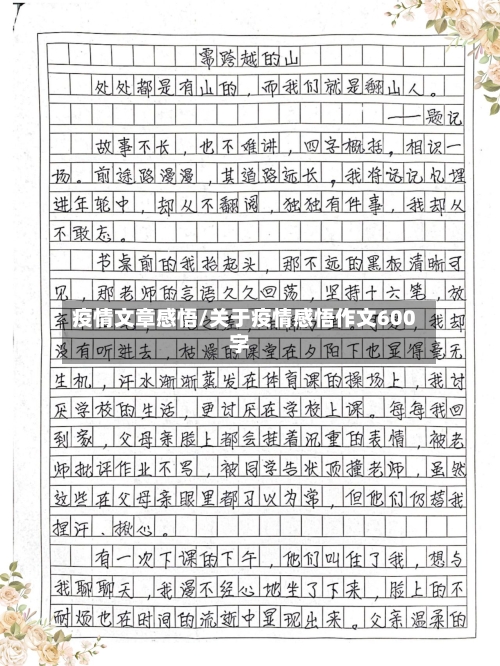 需跨越的山
处处都是有山的，而我们就是翻山人。
——题记
故事不长，也不难讲，四字概括，相识一
场。前途路漫漫，其道路远长，我将记记忆埋
进年轮中，却从不翻阅，独独有件事，我却从
不敢忘。
书桌前的我抬起头，那不远的黑板清晰可
见，那老师的言语久久回荡，坚持十六笔，放
弃
我却
疫情文章感悟/关于疫情感悟作文600
字
没有听进去，枯燥的课堂在夕阳下也显得毫无
生机，汗水渐渐蒸发在体育课的操场上，我讨
厌学校的生活，更讨厌在学校上课。每每我回
到家，父母亲脸上都会挂着沉重的表情，被老
师批评作业不写，被同学告状顶撞老师，虽然
这些在父母亲眼里都习以为常，但他们仍替我
捏汗、揪心。
有一次下课的下午，他们叫住了我，想与
我聊聊天，我漫不经心地坐了下来，脸上的不
耐烦也在时间的流逝中显现出来。父亲温柔的